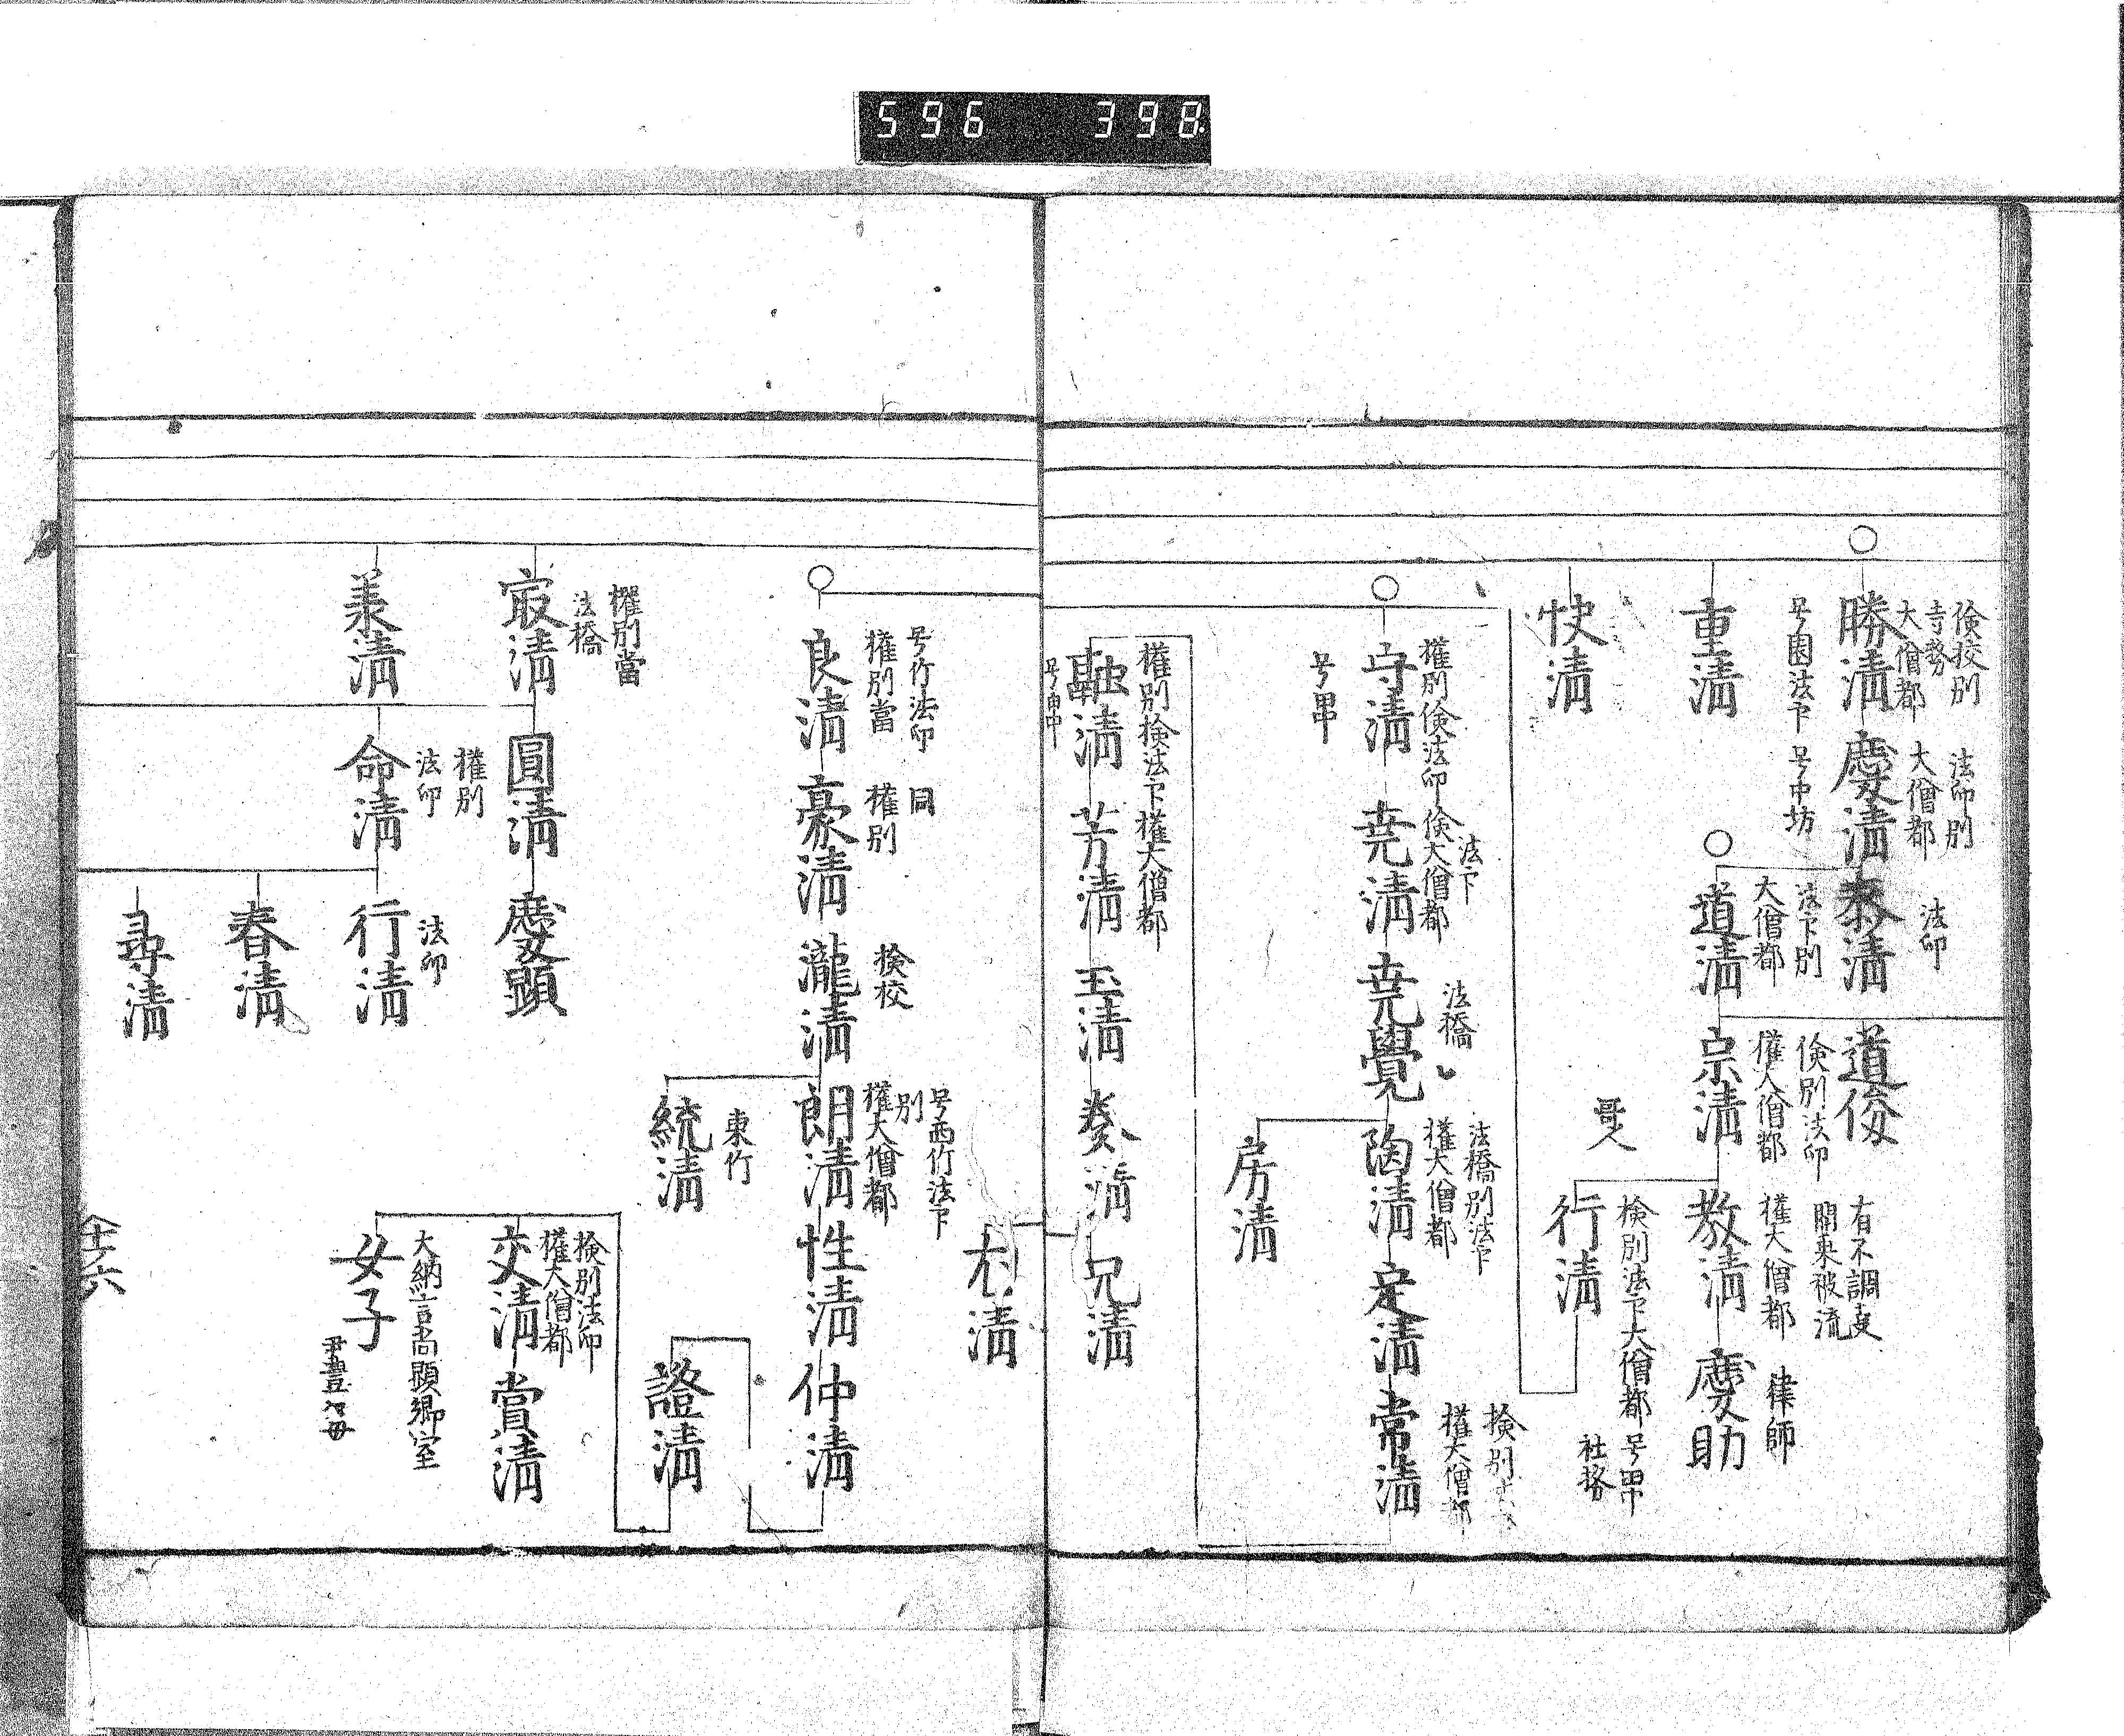 596 398
検校別
寺務
大僧都
勝清
号園法下
法印別
大僧都
慶清
号中坊
法印
泰清
道俊
重清
法下別
大僧都
道清
検別法印
権大僧都
宗清
有不調支
関東被流
権大僧都
教清
律師
慶助
快清
哥人
検別法下大僧都
号田中
社務
行清
権別検法印
守清
号田中
法下
検大僧都
尭清
法橋
尭覺
法橋別法下
権大僧都
陶清
定清
検別
権大僧都
常清
房清
権別検法下
融清
号田中
権大僧都
芳清
玉清
奏清
兄清
村清
号竹法印
権別當
良清
同
権別
豪清
検校
瀧清
号西竹法下
別
権大僧都
朗清
性清
仲清
東竹
統清
證清
権別當
法橋
㝡清
圓清
慶顕
検別法印
権大僧都
交清
賞清
美清
権別
法印
命清
法印
行清
大納言尚顕卿室
女子
尹豊公母
春清
尋清
十六